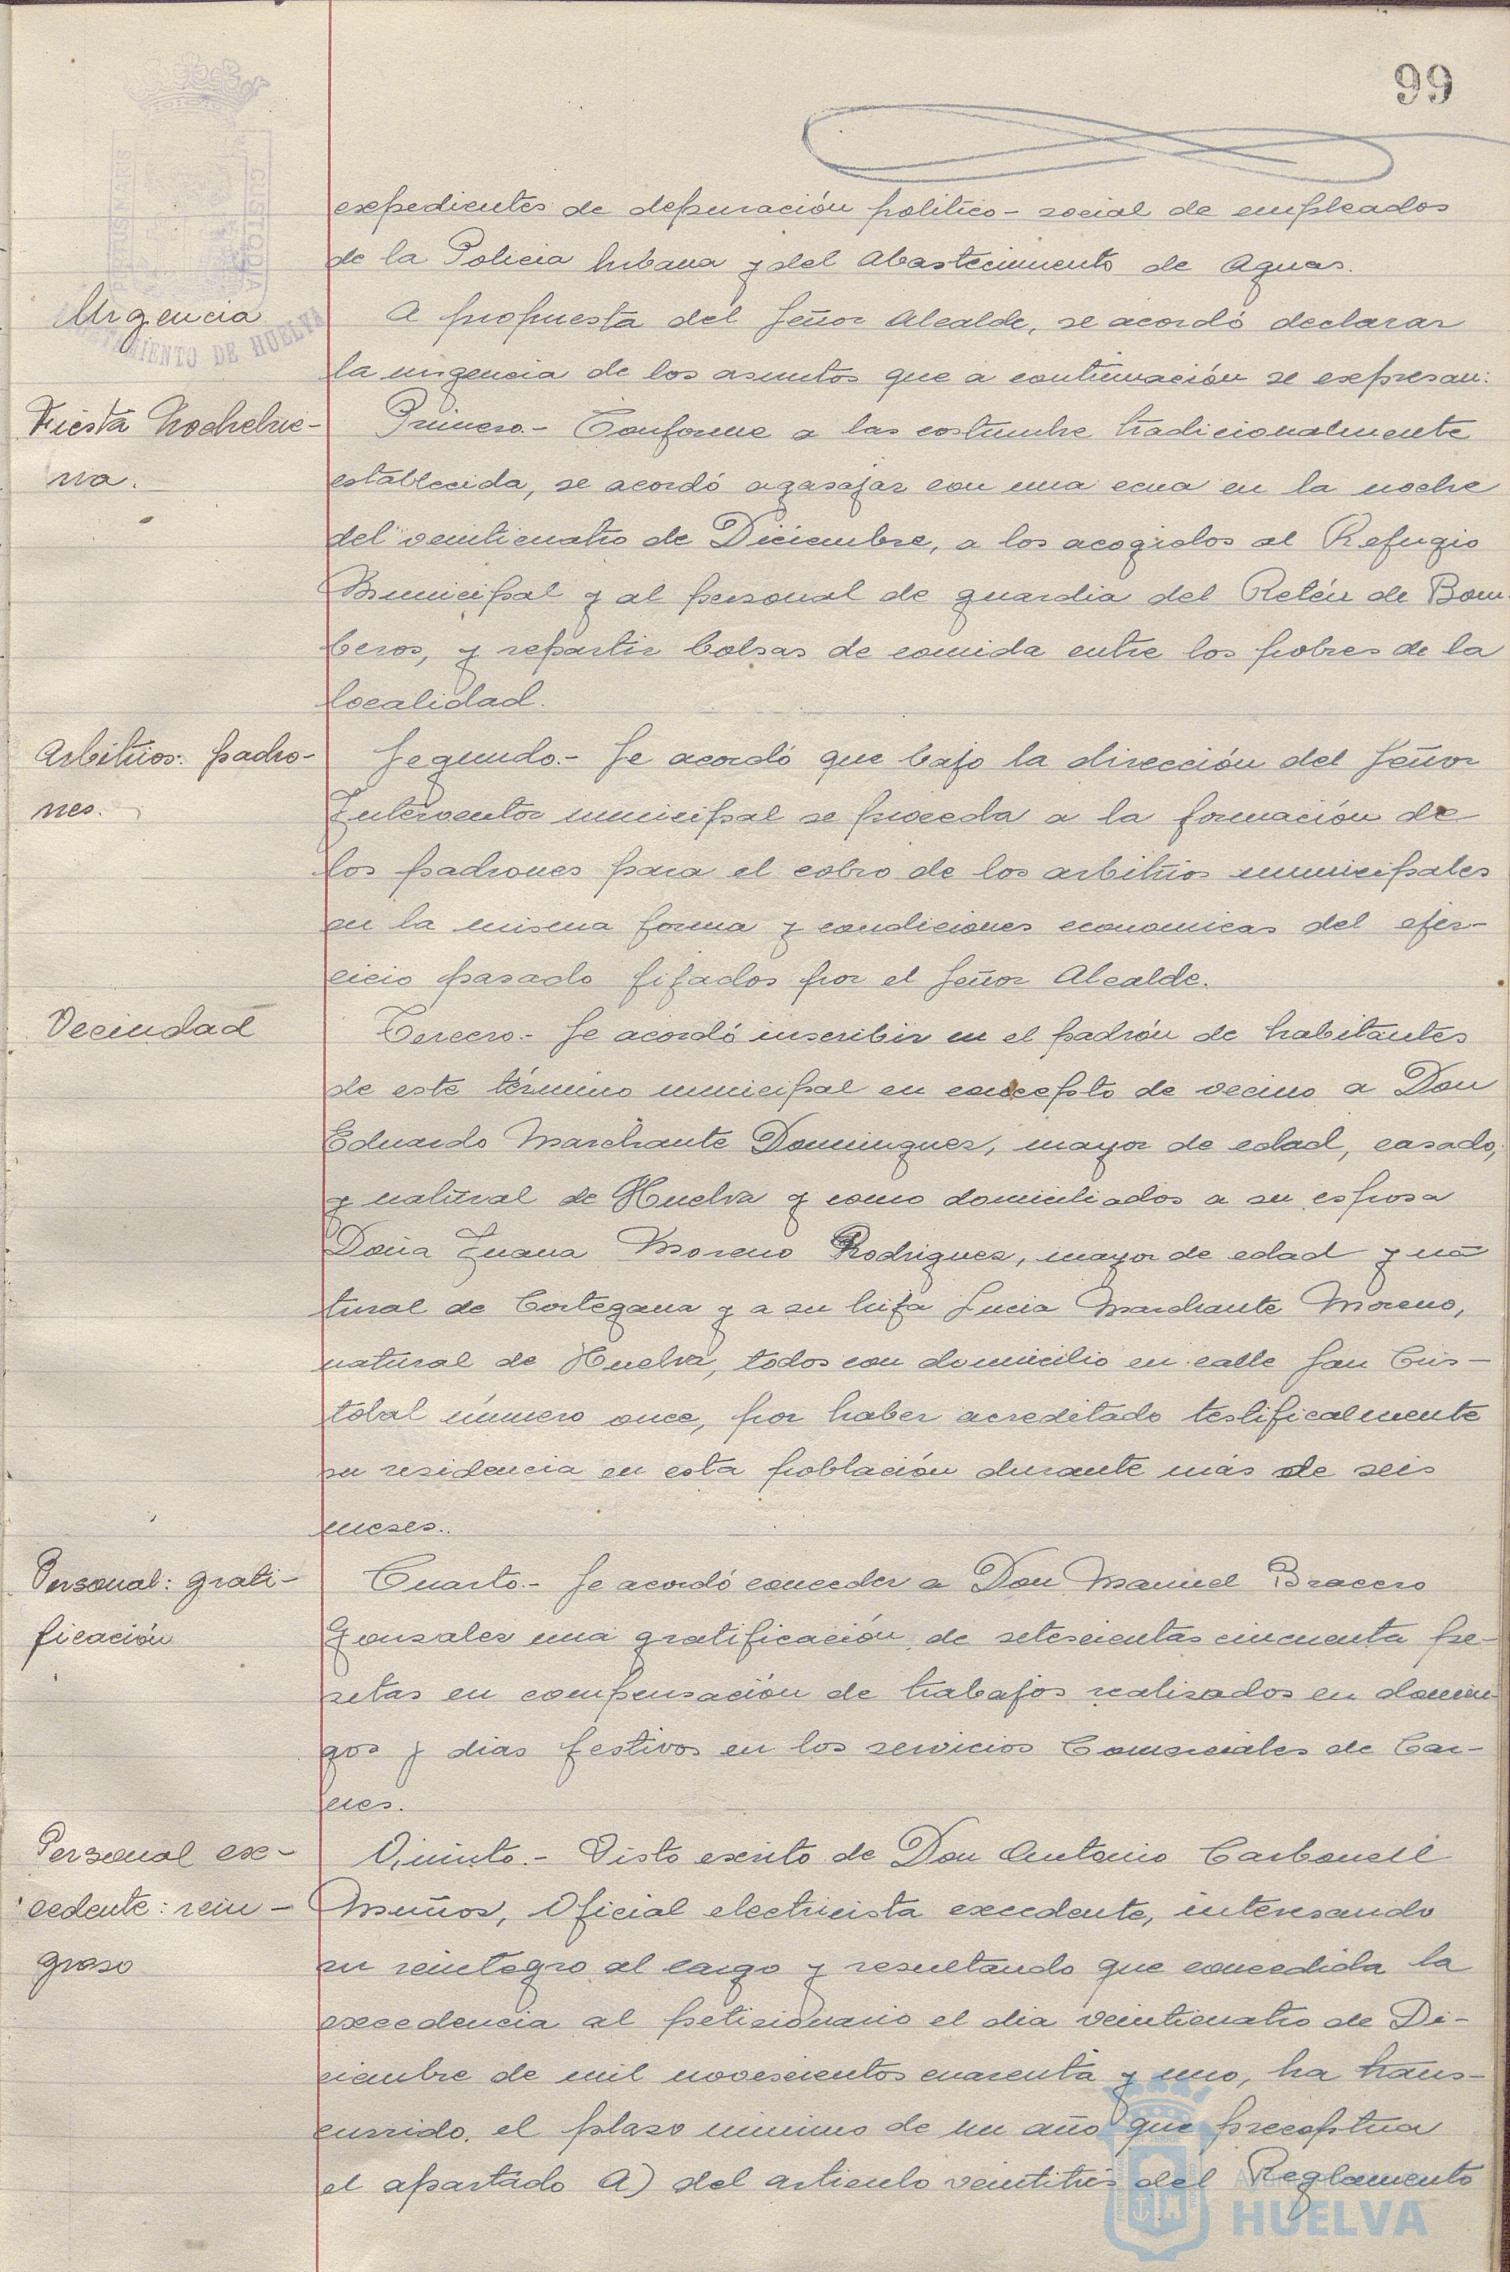 99
expedientes de depuración politico-social de empleados
de la Policia Urbana y del Abastecimiento de Aguas.
Urgencia
A propuesta del Señor Alcalde, se acordó declarar
la urgencia de los asuntos que a continuación se expresan:
Fiesta Nochebue-
na.
Primero.- Conforme a las costumbre tradicionalmente
establecida, se acordó agasajar con una cena en la noche
del veinticuatro de Diciembre, a los acogidos al Refugio
Municipal y al personal de guardia del Retén de Bom-
beros, y repartir bolsas de comida entre los pobres de la
localidad.
Arbitrios: padro-
nes.
Segundo.- Se acordó que bajo la dirección del Señor
Interventor municipal se proceda a la formación de
los padrones para el cobro de los arbitrios municipales
en la misma forma y condiciones economicas del ejer-
cicio pasado fijados por el Señor Alcalde.
Vecindad
Tercero.- Se acordó inscribir en el padrón de habitantes
de este término municipal en concepto de vecino a Don
Eduardo Marchante Dominguez, mayor de edad, casado,
y natural de Huelva y como domiciliados a su esposa
Doña Juana Moreno Rodriguez, mayor de edad y na
tural de Cortegana y a su hija Lucia Marchante Moreno,
natural de Huelva, todos con domicilio en calle San Cris-
tobal número once, por haber acreditado testificalmente
su residencia en esta población durante más de seis
meses.
Personal: grati-
ficación
Cuarto.- Se acordó conceder a Don Manuel Bracero
Gonzalez una gratificación de setescientas cincuenta pe-
setas en compensación de trabajos realizados en domin-
gos y dias festivos en los servicios Comerciales de Car-
nes.
Personal ex-
cedente: rein-
greso
Quinto.- Visto escrito de Don Antonio Carbonell
Muñoz, Oficial electricista excedente, interesando
su reintegro al cargo y resultando que concedida la
excedencia al peticionario el dia veinticuatro de Di-
ciembre de mil novescientos cuarenta y uno, ha trans-
currido el plazo minimo de un año que preceptua
el apartado A) del articulo veintitrés del Reglamento
AYUNTAMIENTO DE HUELVA
HUELVA